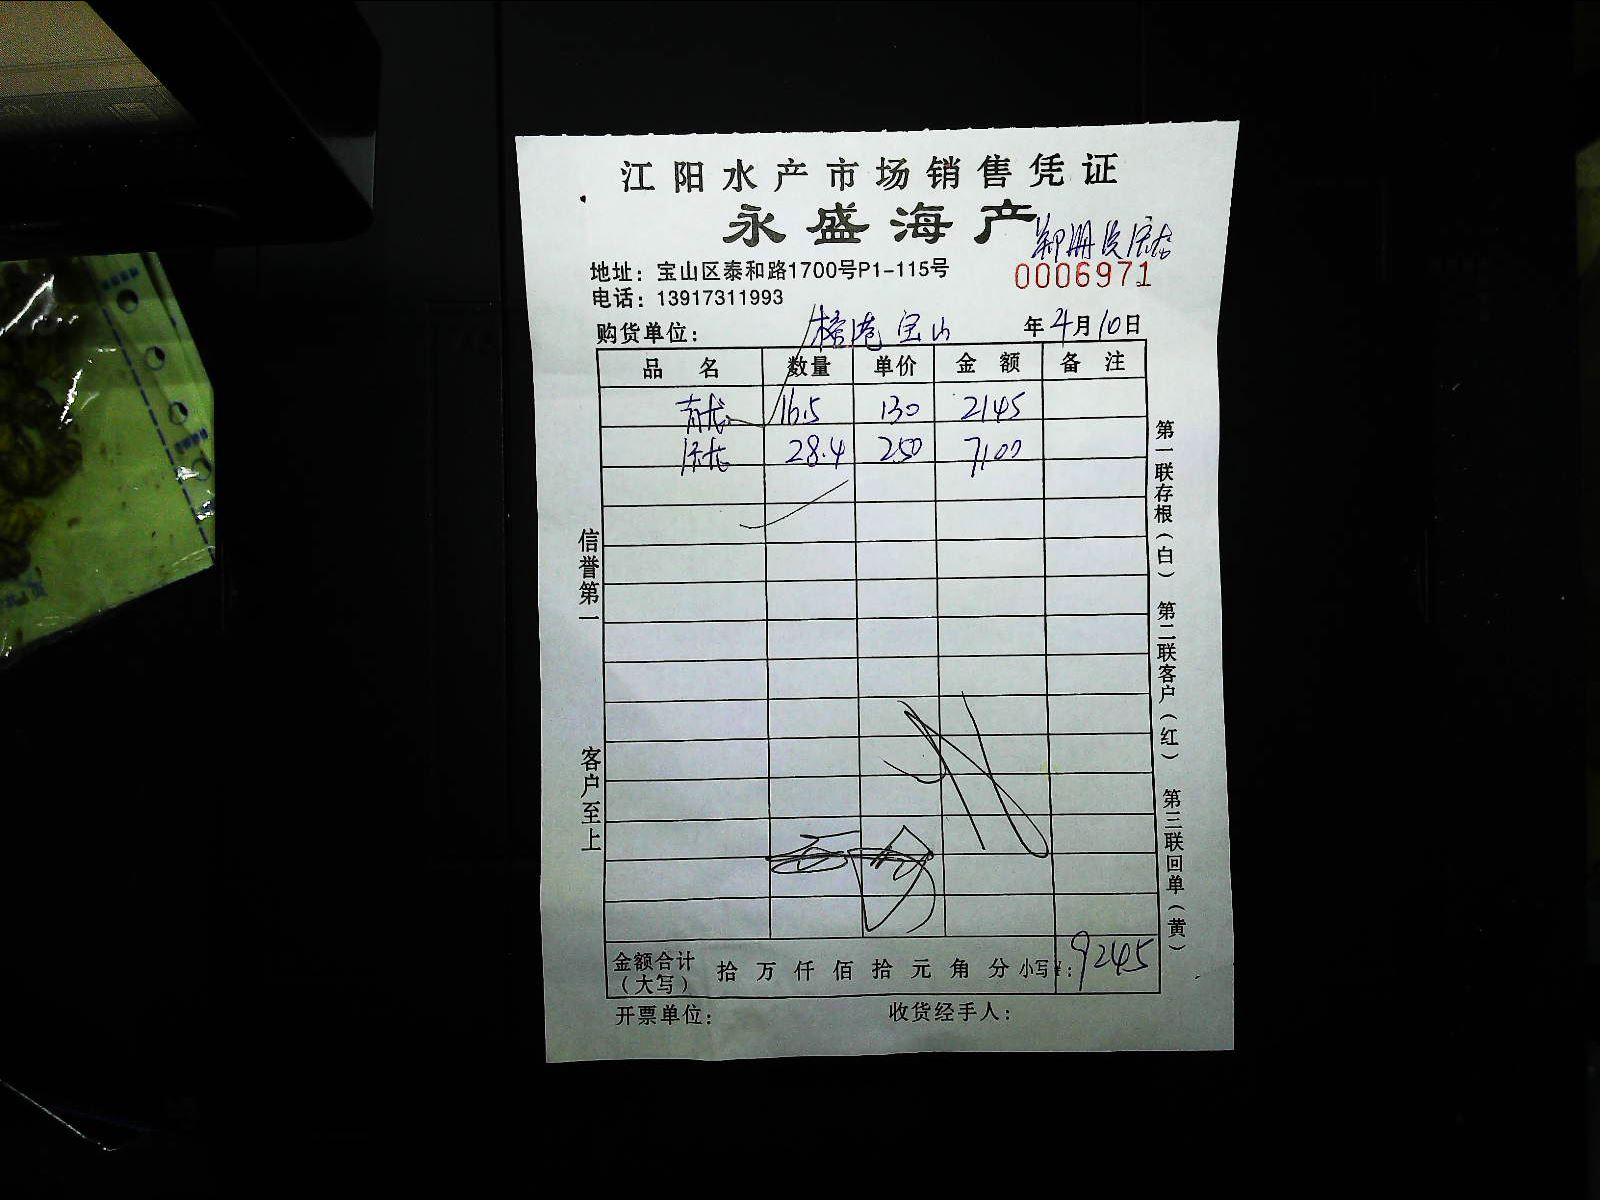 江阳水产市场销售凭证
永盛海产
地址：宝山区泰和路1700号P1-115号
0006971
电话：13917311993
购货单位： 宝山 年4月10日
品名 数量 单价 金额 备注
青龙 16.5 130 2145
28.4 250 7100
信誉第一
客户至上
第一联存根（白） 第二联客户（红） 第三联回单（黄）
金额合计（大写） 拾 万 仟 佰 拾 元 角 分 小写¥：9245
开票单位： 收货经手人：